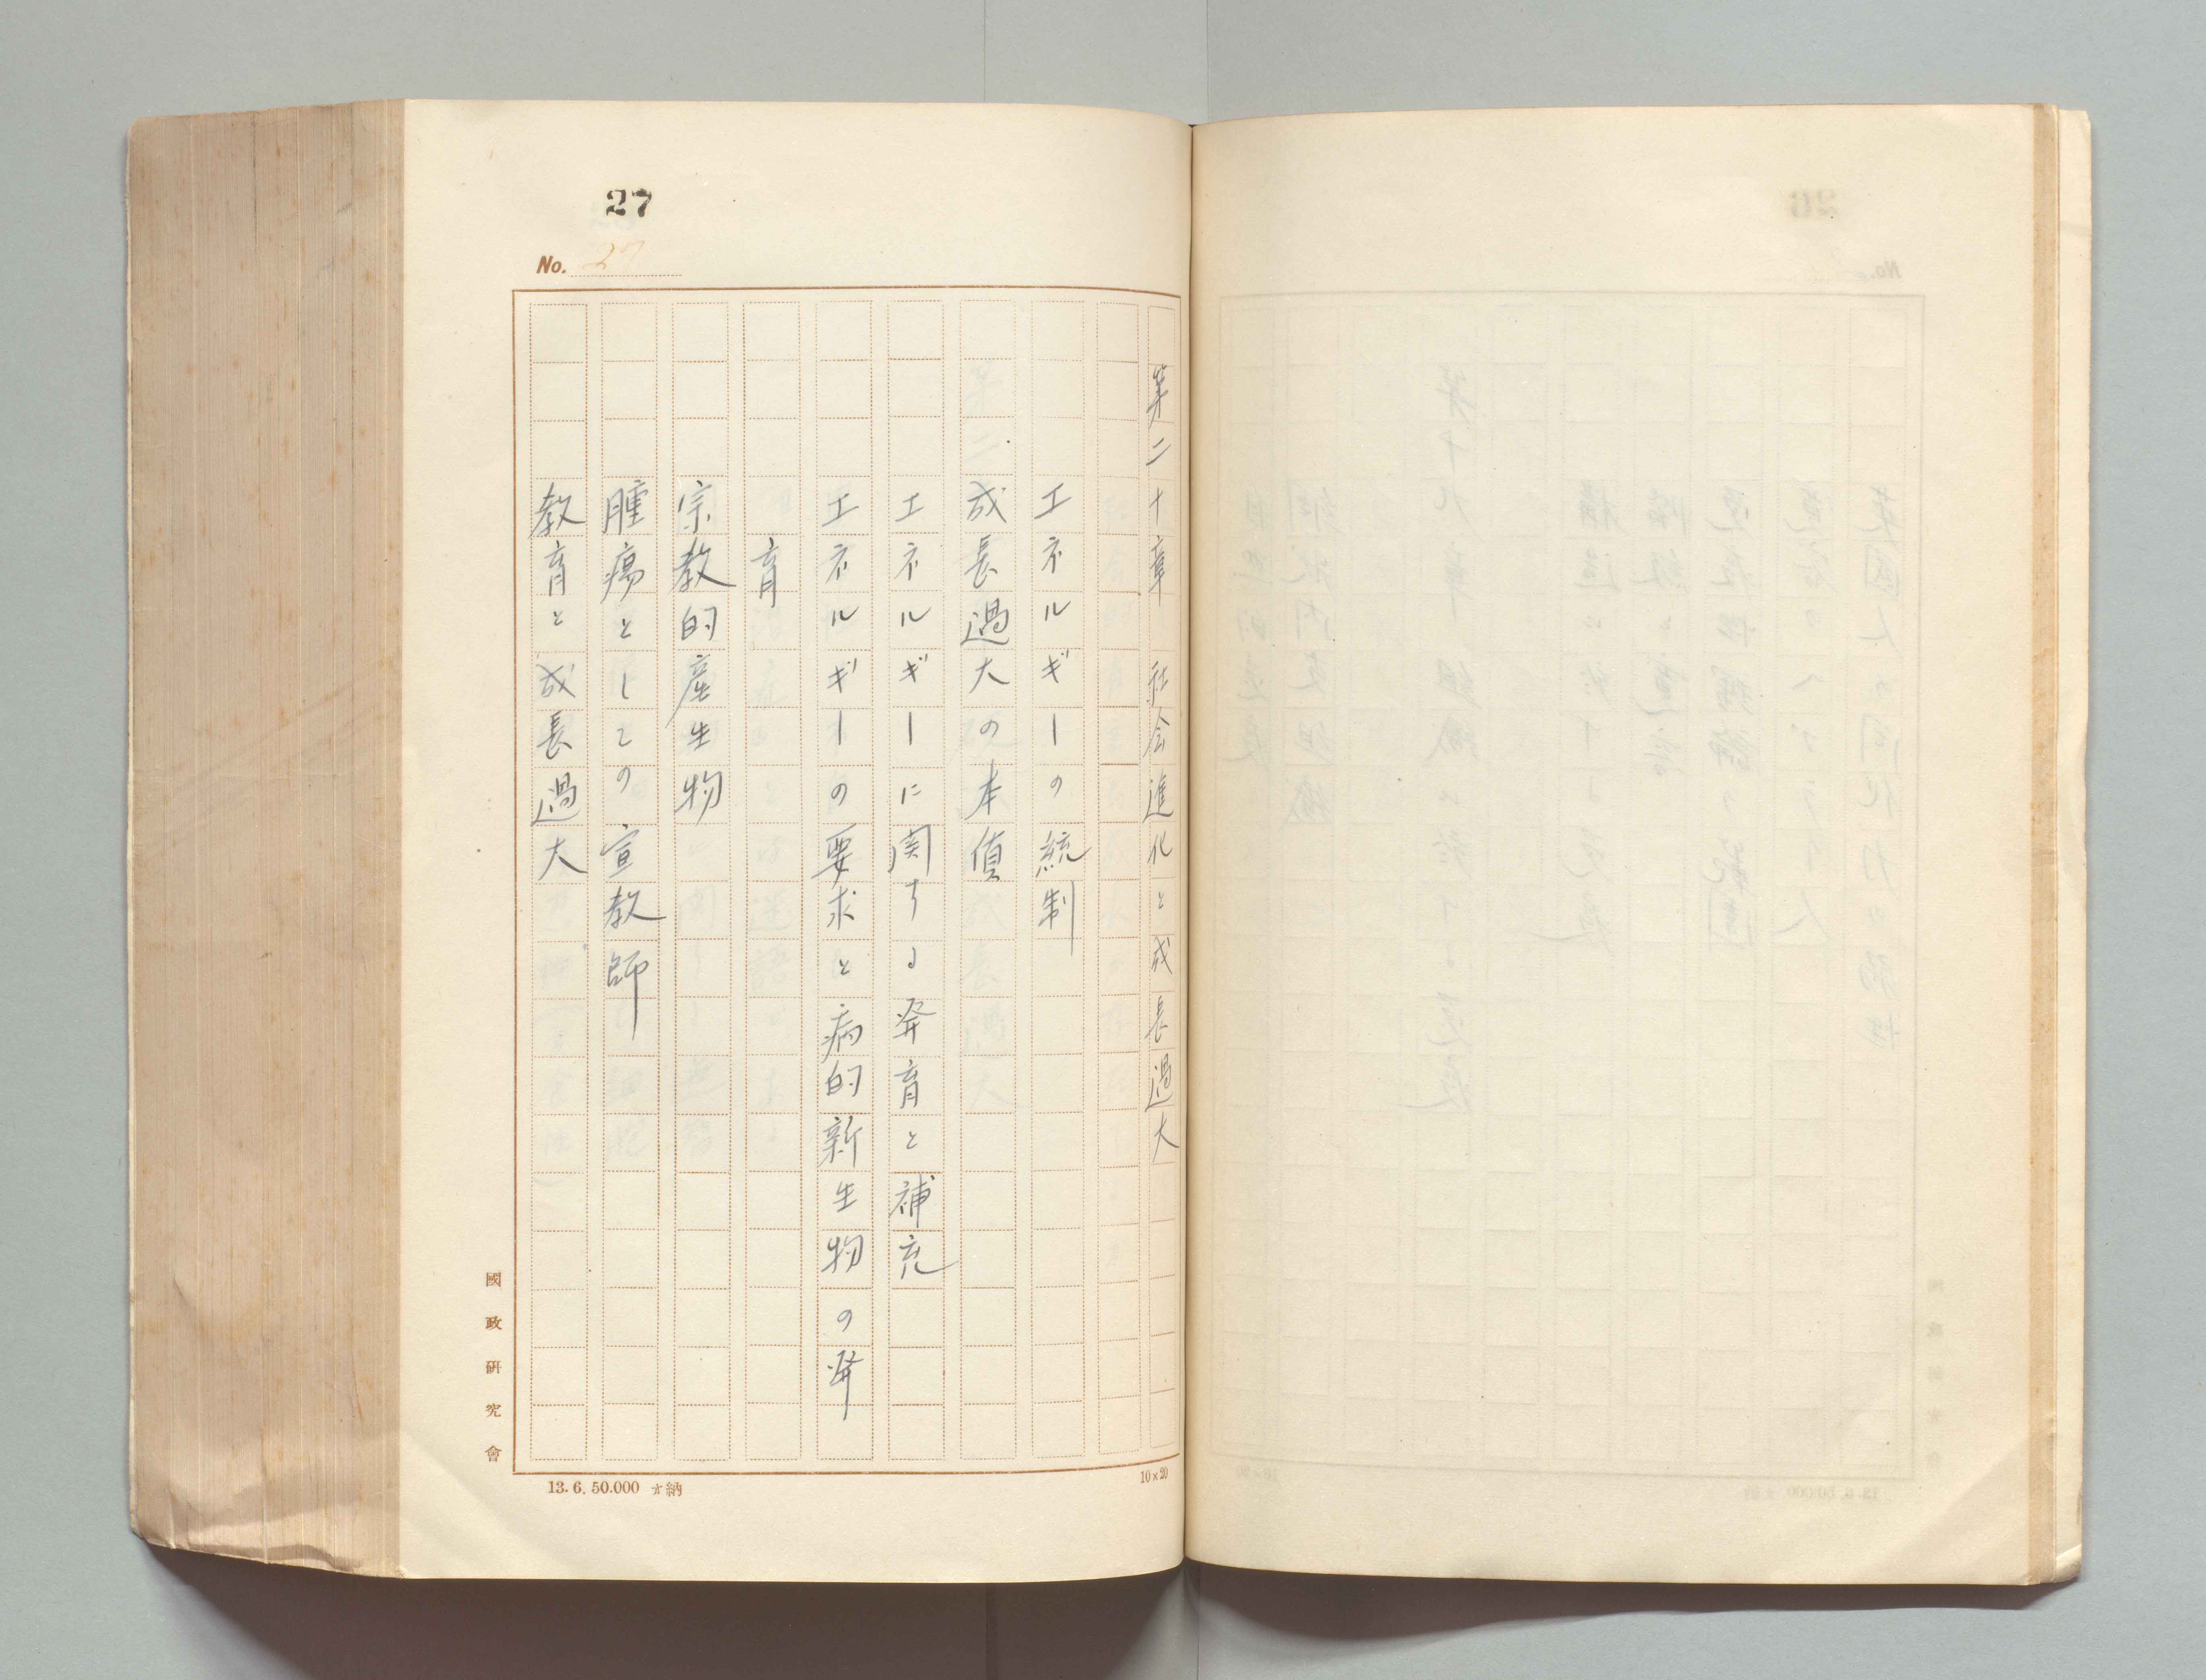 27
No. 27
第二十章 社会進化と成長過大
エネルギーの統制
成長過大の本質
エネルギーに関する発育と補充
エネルギーの要求と病的新生物の発
育
宗教的産生物
腫瘍としての宣教師
教育と成長過大
國政研究會
13.6.50.000 納
10×20